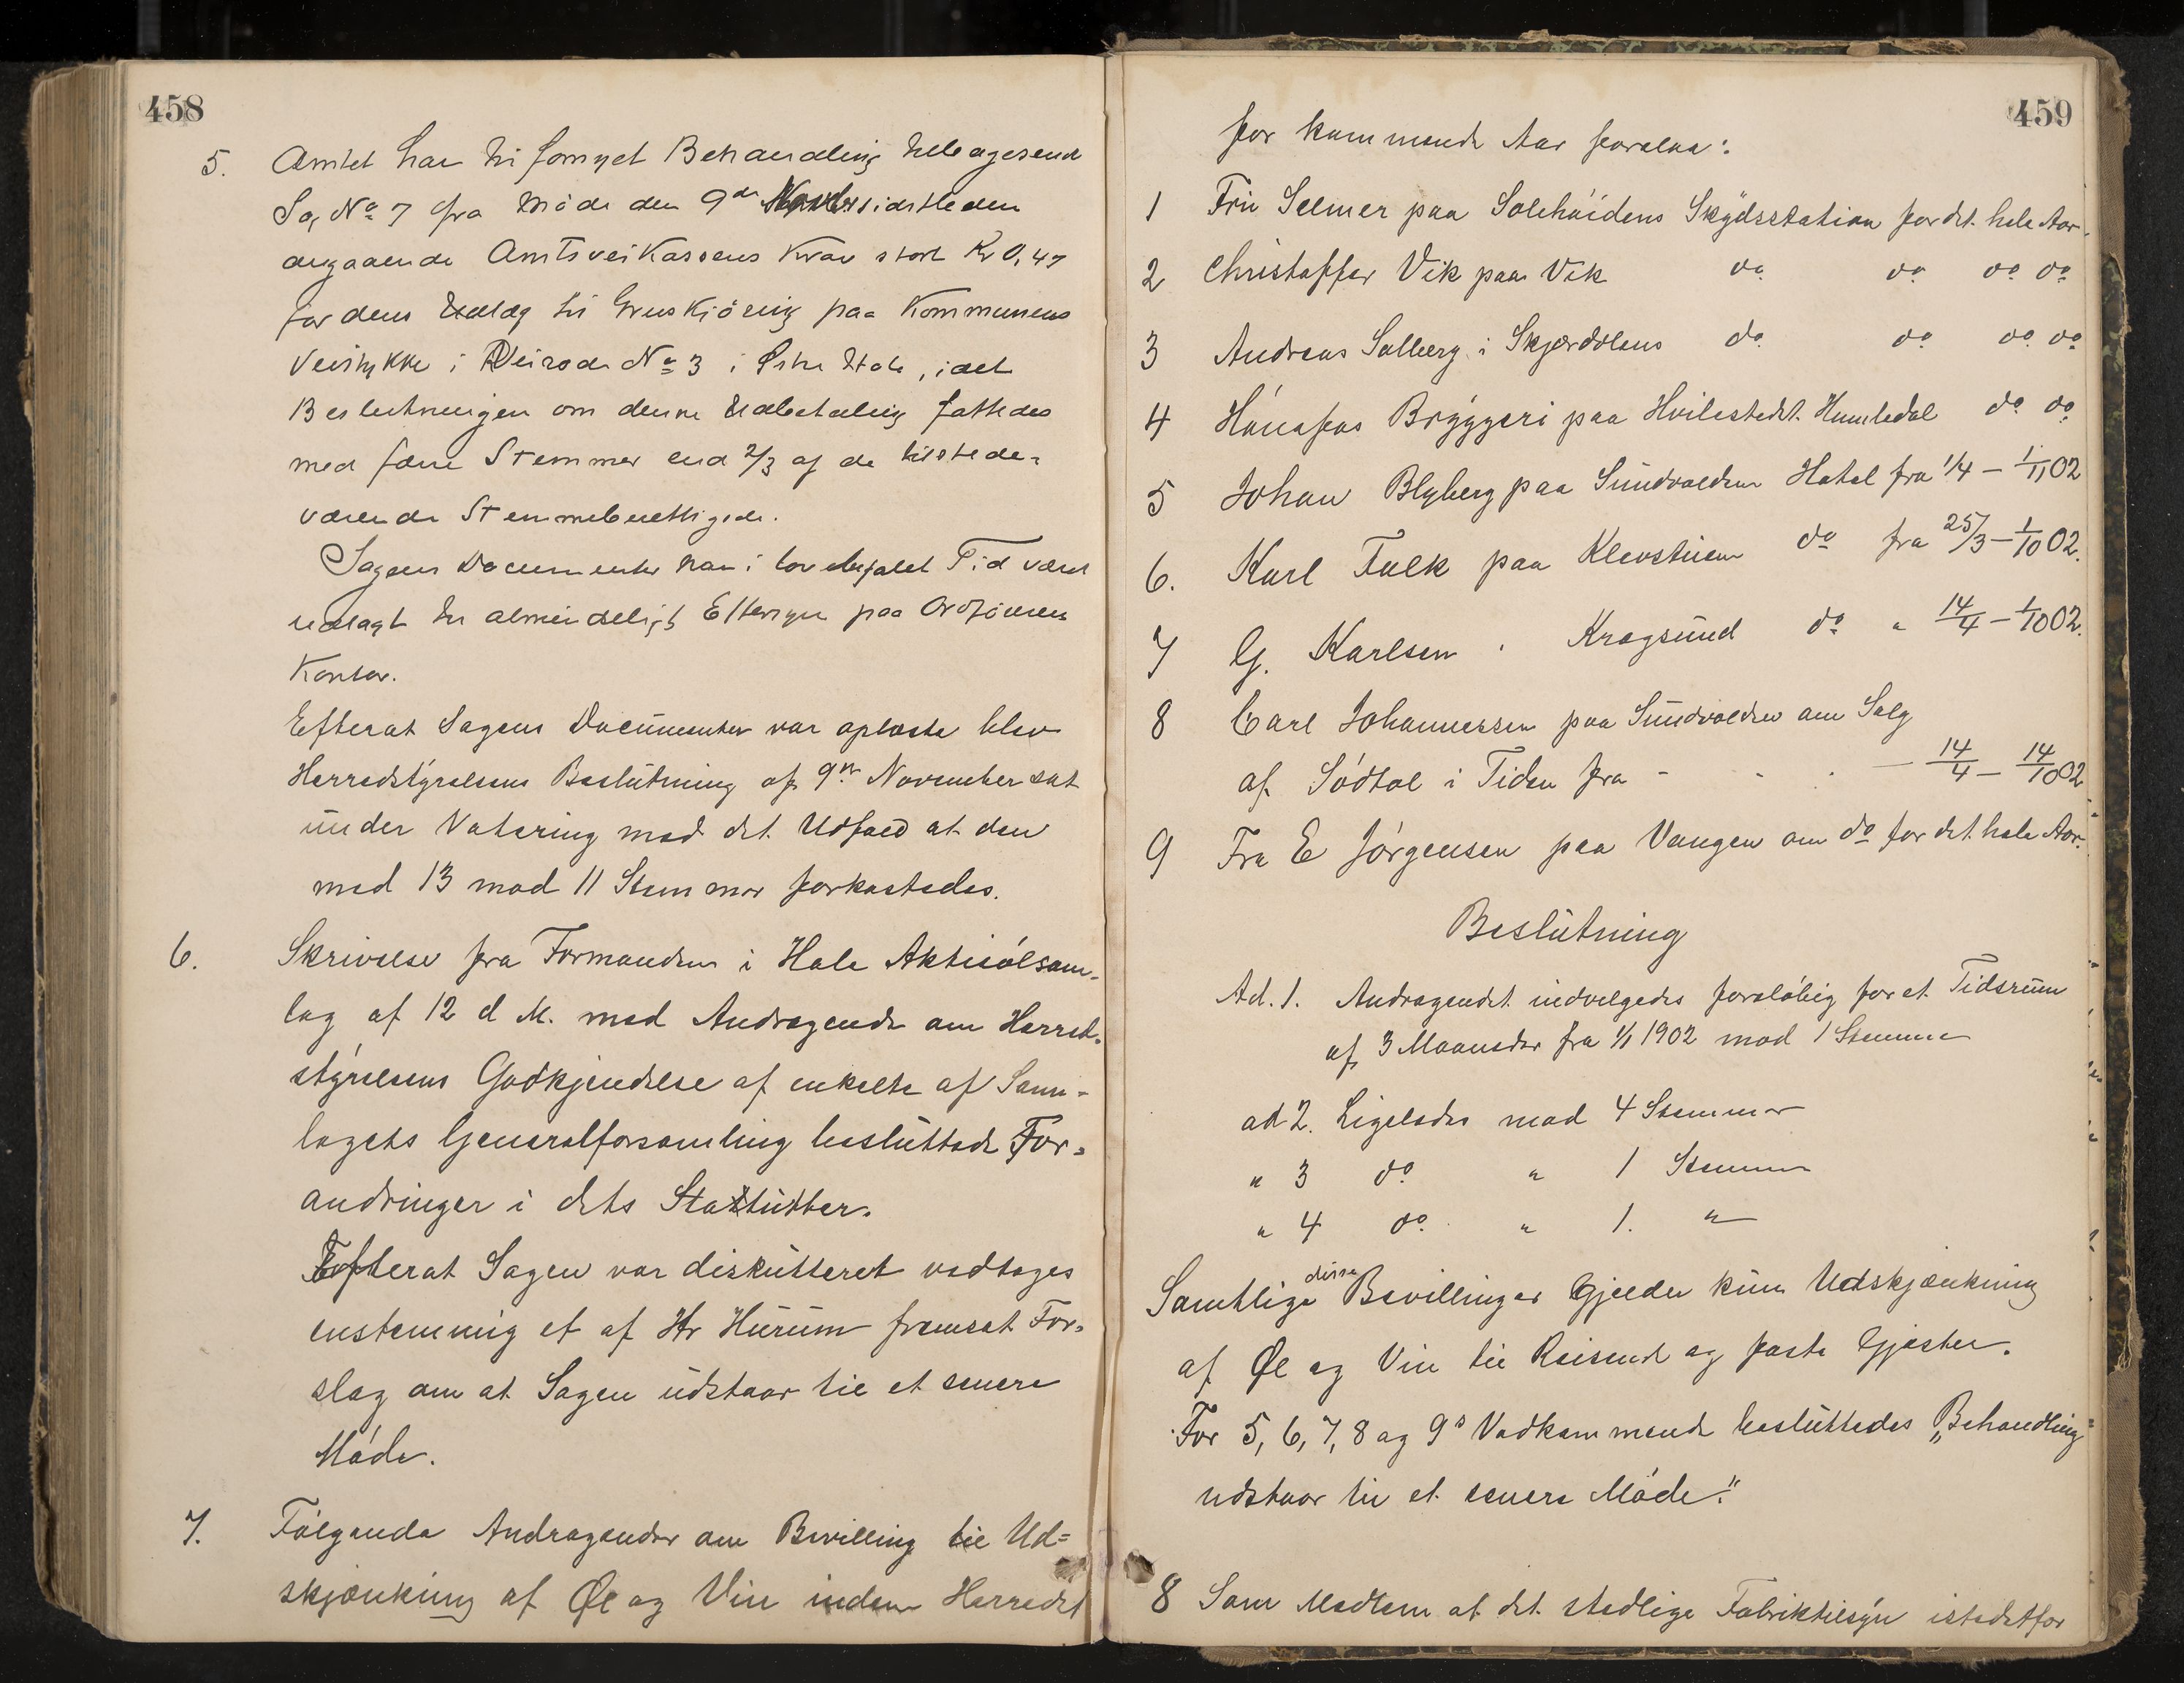 458
5. Amtet har til fornyet Behandling tilbagesend
Sag No 7 fra Møde den 9de Novbr sidstleden
angaaende Amtsveikassens Krav stort Kr 0,47
for dens Udlæg til Gruskjöring paa Kommunens
Veistykke i Veirode No 3 i Hole, idet
Beslutningen om denne Udbetaling fattedes
med færre Stemmer end 2/3 af de tilstede=
værende Stemmeberettigede.
Sagens Documenter har i lovbefalet Tid været
udlagt til almindeligt Eftersyn paa Ordförerens
Kontor.
Efterat Sagens Documenter var oplæste blev
Herredstyrelsens Beslutning af 9de November sat
under Votering med det Udfald at den
med 13 mod 11 Stemmer forkastedes.
6. Skrivelse fra Formanden i Hole Aktieölsam-
lag af 12 d M. med Andragende om Herred-
styrelsens Godkjendelse af enkelte af Sam-
lagets Generalforsamling besluttede For=
andringer i dets Statutter.
Efterat Sagen var diskutteret vedtoges
enstemmig et af Hr Hurum fremsat For=
slag om at Sagen udstaar til et senere
Möde.
7. Fölgende Andragender om Bevilling til Ud=
skjænkning af Øl og Vin inden Herredet
459
for kommende Aar forelaa:
1 Fru Selmer paa Solehöidens Skydsstation for det hele Aar.
2 Christoffer Vik paa Vik do do do do
3 Andreas Solberg i Skjærdalens do do do do
4 Hönefos Bryggeri paa Hvilestedet Humledal do do
5 Johan Blyberg paa Sundvolden Hotel fra 1/4 – 1/11 02
6. Karl Falk paa Klevstuen do fra 25/3 – 1/10 02.
7 G. Karlsen " Kragsund do " 14/4 – 1/10 02.
8 Carl Johannessen paa Sundvolden om Salg
af Födtöl i Tiden fra - - - 14/4 – 14/10 02
9 Fra E Jörgensen paa Vangen om do for det hele Aar.
Beslutning
Ad. 1. Andragendet indvilgedes foreløbig for et Tidsrum
af 3 Maaneder fra 1/1 1902 mod 1 Stemme
ad 2. Ligeledes mod 4 Stemmer
" 3 do " 1 Stemme
" 4 do " 1. "
Samtlige disse Bevillinger gjelder kun Udskjænkning
af Øl og Vin til Reisende og faste Gjæster.
For 5, 6, 7, 8 og 9s Vedkommende besluttedes „Behandling
udstaar til et senere Möde."
8 Som Medlem af det stedlige Fabriktilsyn istedetfor